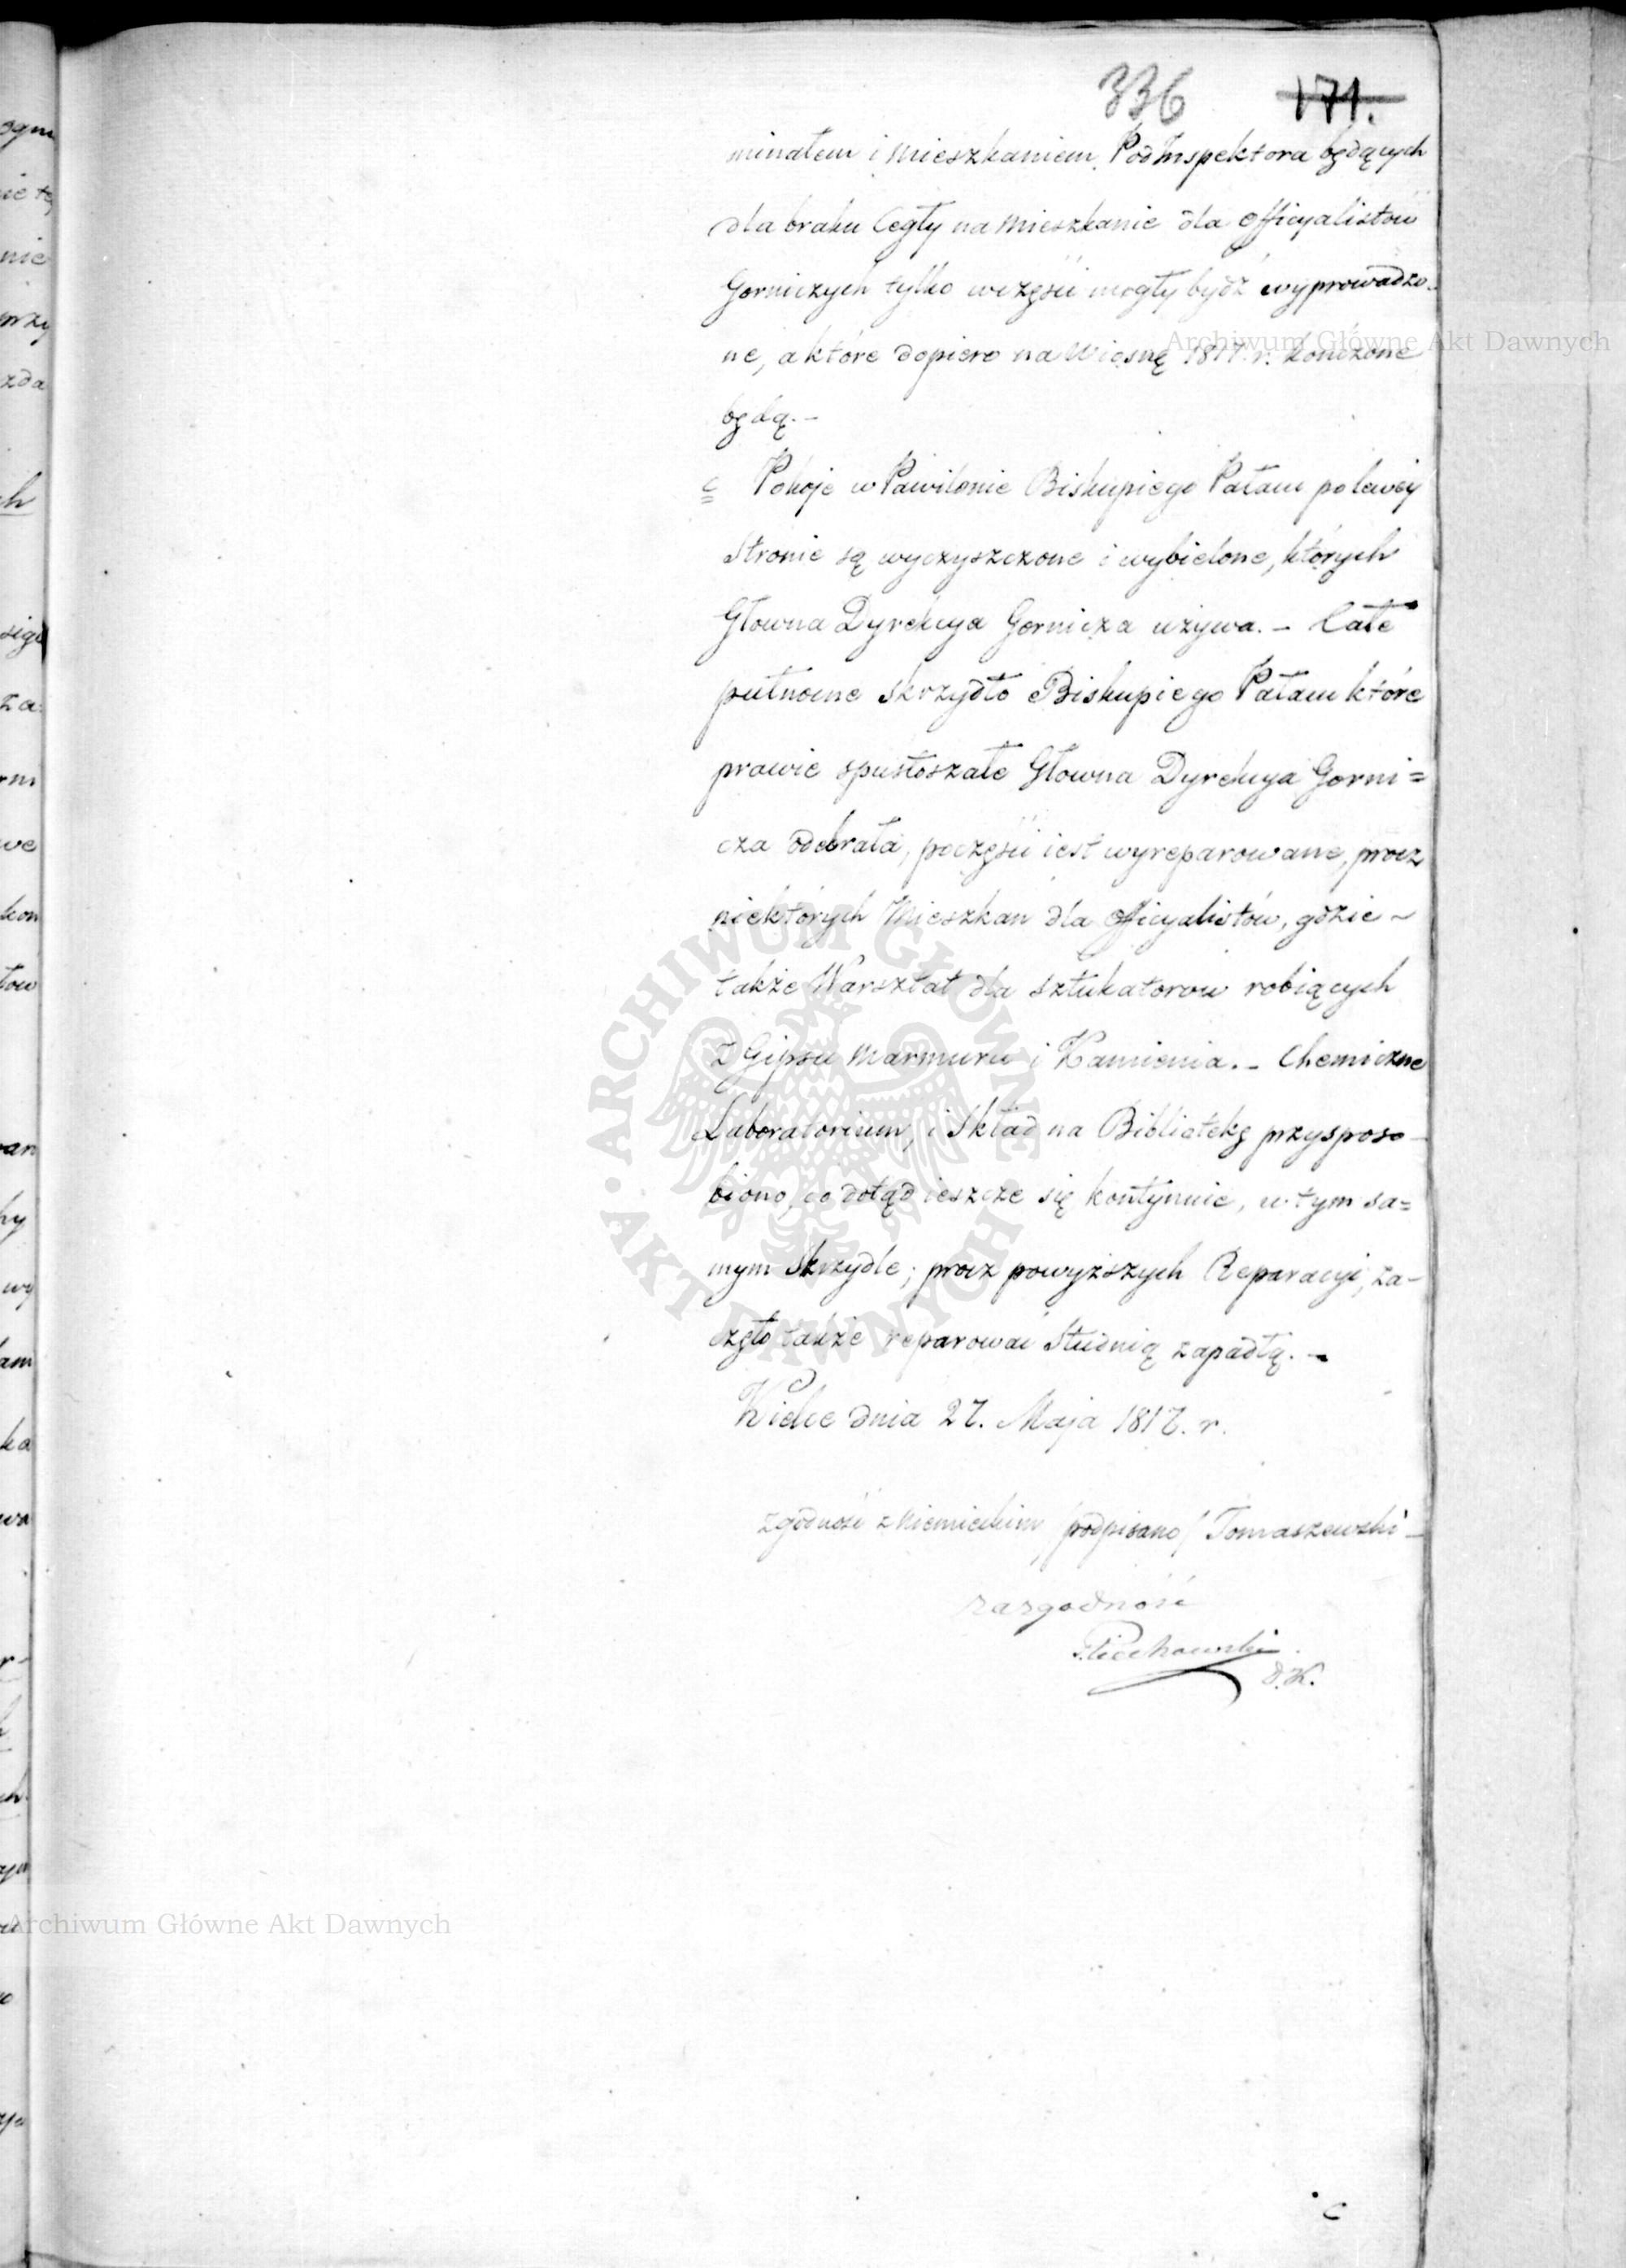 336 171.
minałem i Mieszkaniem PodInspektora będących
dla braku Cegły na Mieszkanie dla Officyalistow
Gorniczych tylko wczęści mogły bydź wyprowadzo-
ne, a które dopiero na Wiosnę 1817. r. kończone
będą. –
c Pokoje w Pawilonie Biskupiego Pałacu po lewey
Stronie są wyczyszczone i wybielone, których
Głowna Dyrekcya Gornicza używa. – Całe
pułnocne skrzydło Biskupiego Pałacu które
prawie spustoszałe Głowna Dyrekcya Gorni=
cza odebrała, poczęści iest wyreparowane, procz
niektórych Mieszkań dla Officyalistów, gdzie ~
także Warsztat dla sztukatorow robiących
z Gipsu Marmuru i Kamienia. – Chemiczne
Laboratorium, i Skład na Bibliotekę przysposo-
biono, co dotąd ieszcze się kontynuie, w tym sa=
mym Skrzydle; procz powyższych Reparacyi, za-
częto także reparować Studnią zapadłą. –
Kielce dnia 27. Maja 1817. r.
zgodność z Niemieckim /podpisano/ Tomaszewski –
za zgodność
Piechowski
D.K.
Archiwum Główne Akt Dawnych
ARCHIWUM GŁÓWNE
AKT DAWNYCH
Archiwum Główne Akt Dawnych